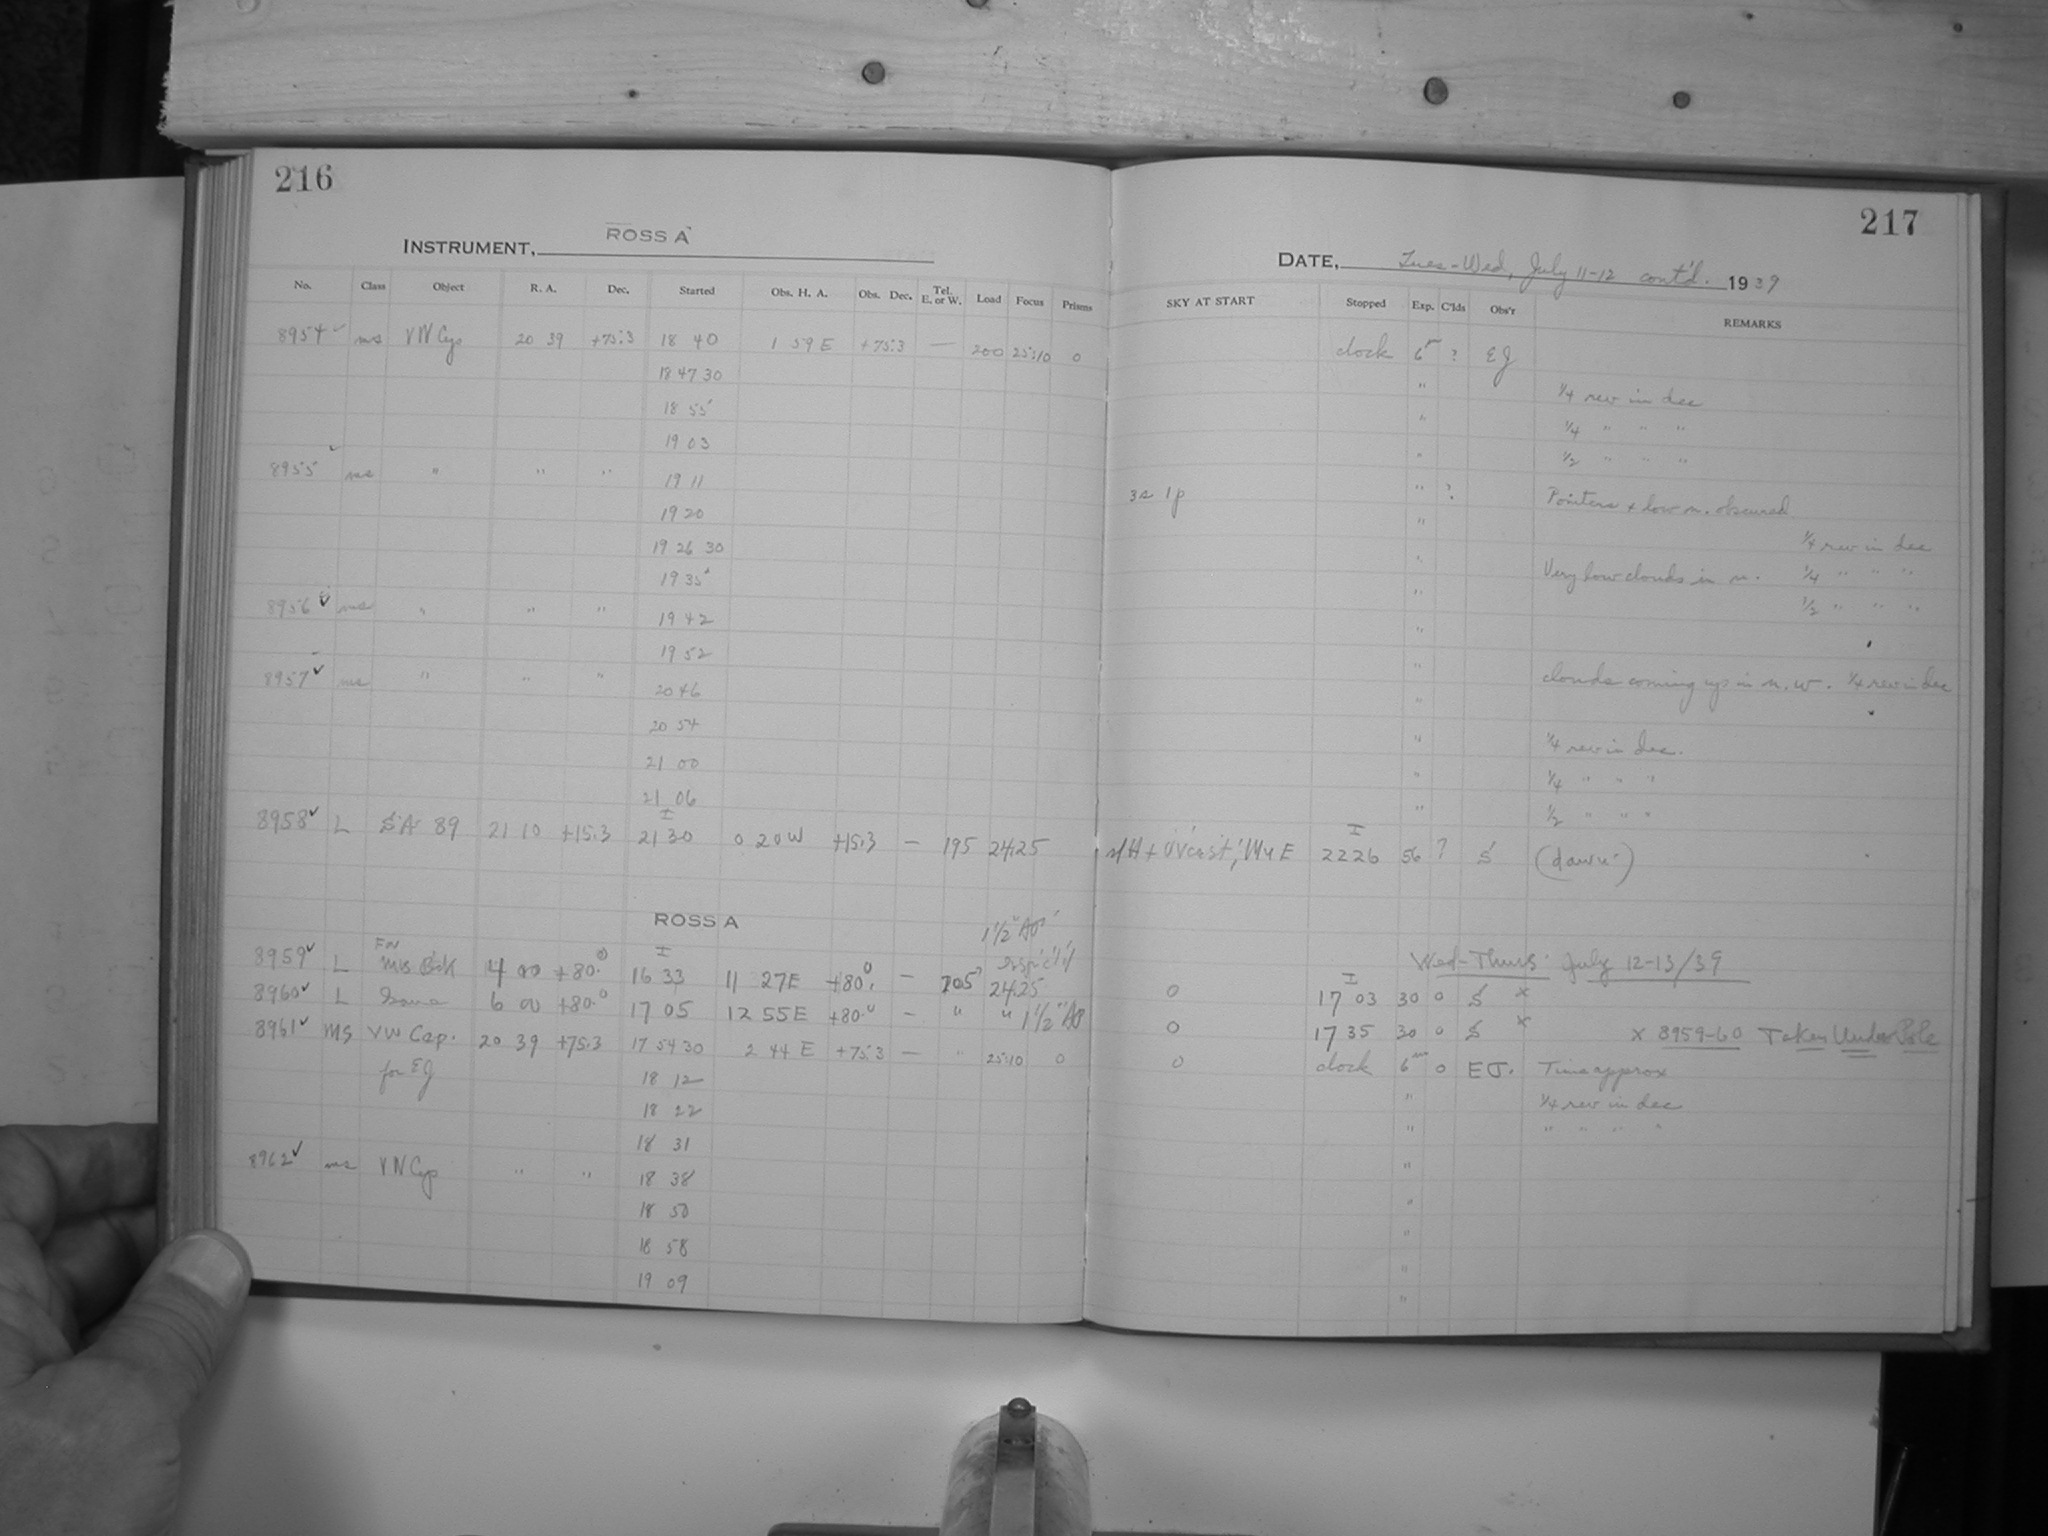 216
INSTRUMENT, ROSS A
No. Class Object R. A. Dec. Started Obs. H. A. Obs. Dec. Tel. E. or W. Load Focus Prisms
8954 ms VW Cep 20 39 +75.3 18 40 1 59 E +75.3 — 200 25.10 0
18 47 30
18 55
19 03
8955 ms " " " 19 11
19 20
19 26 30
19 35
8956 ms " " " 19 42
19 52
8957 ms " " " 20 46
20 54
21 00
21 06
8958 L SA 89 21 10 +15.3 21 30 0 20 W +15.3 — 195 24.25
ROSS A
1½" Ap
8959 L For Mrs Bok 4 00 +80.0 16 33 11 27 E +80.0 — 205 24.25
8960 L Same 6 00 +80.0 17 05 12 55 E +80.0 — " " 1½" Ap
8961 MS VW Cep. 20 39 +75.3 17 54 30 2 44 E +75.3 — " 25.10 0
for EJ 18 12
18 22
18 31
8962 ms VW Cep " " 18 38
18 50
18 58
19 09
217
DATE, Tues-Wed, July 11-12 cont'd. 1939
SKY AT START Stopped Exp. C'lds Obs'r REMARKS
clock 6m ? EJ
" ¼ rev in dec
" ¼ " " "
" ½ " " "
3s 1p " ? Pointers + low n. obscured
" ¼ rev in dec
" Very low clouds in n. ¼ " " "
" ½ " " "
"
" clouds coming up in n.w. ¼ rev in dec
"
" ¼ rev in dec.
" ¼ " " "
" ½ " " "
2226 56 ? S (dawn)
Wed-Thurs July 12-13/39
0 17 03 30 0 S x
0 17 35 30 0 S x x 8959-60 Taken Under Pole
0 clock 6m 0 EJ. Time approx
" ¼ rev in dec
" " " " "
"
"
"
"
"